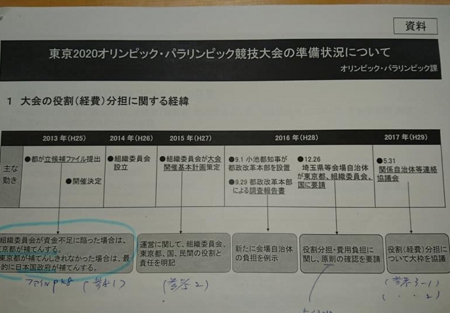 資料
東京2020オリンピック・パラリンピック競技大会の準備状況について
オリンピック・パラリンピック課
1 大会の役割(経費)分担に関する経緯
2013年(H25)
2014年(H26)
2015年(H27)
2016年(H28)
2017年(H29)
主な
動き
●都が立候補ファイル提出
●開催決定
●組織委員会
設立
●組織委員会が大会
開催基本計画策定
●9.1 小池都知事が
都政改革本部を設置
●9.29 都政改革本部に
よる調査報告書
●12.26
埼玉県等会場自治体
が東京都、組織委員会、
国に要請
●5.31
関係自治体等連絡
協議会
組織委員会が資金不足に陥った場合は、
東京都が補てんする。
東京都が補てんしきれなかった場合は、最
的に日本国政府が補てんする。
運営に関して、組織委員会、
東京都、国、民間の役割と
責任を明記
新たに会場自治体
の負担を例示
役割分担・費用負担に
関し、原則の確認を要請
役割(経費)分担に
ついて大枠を協議